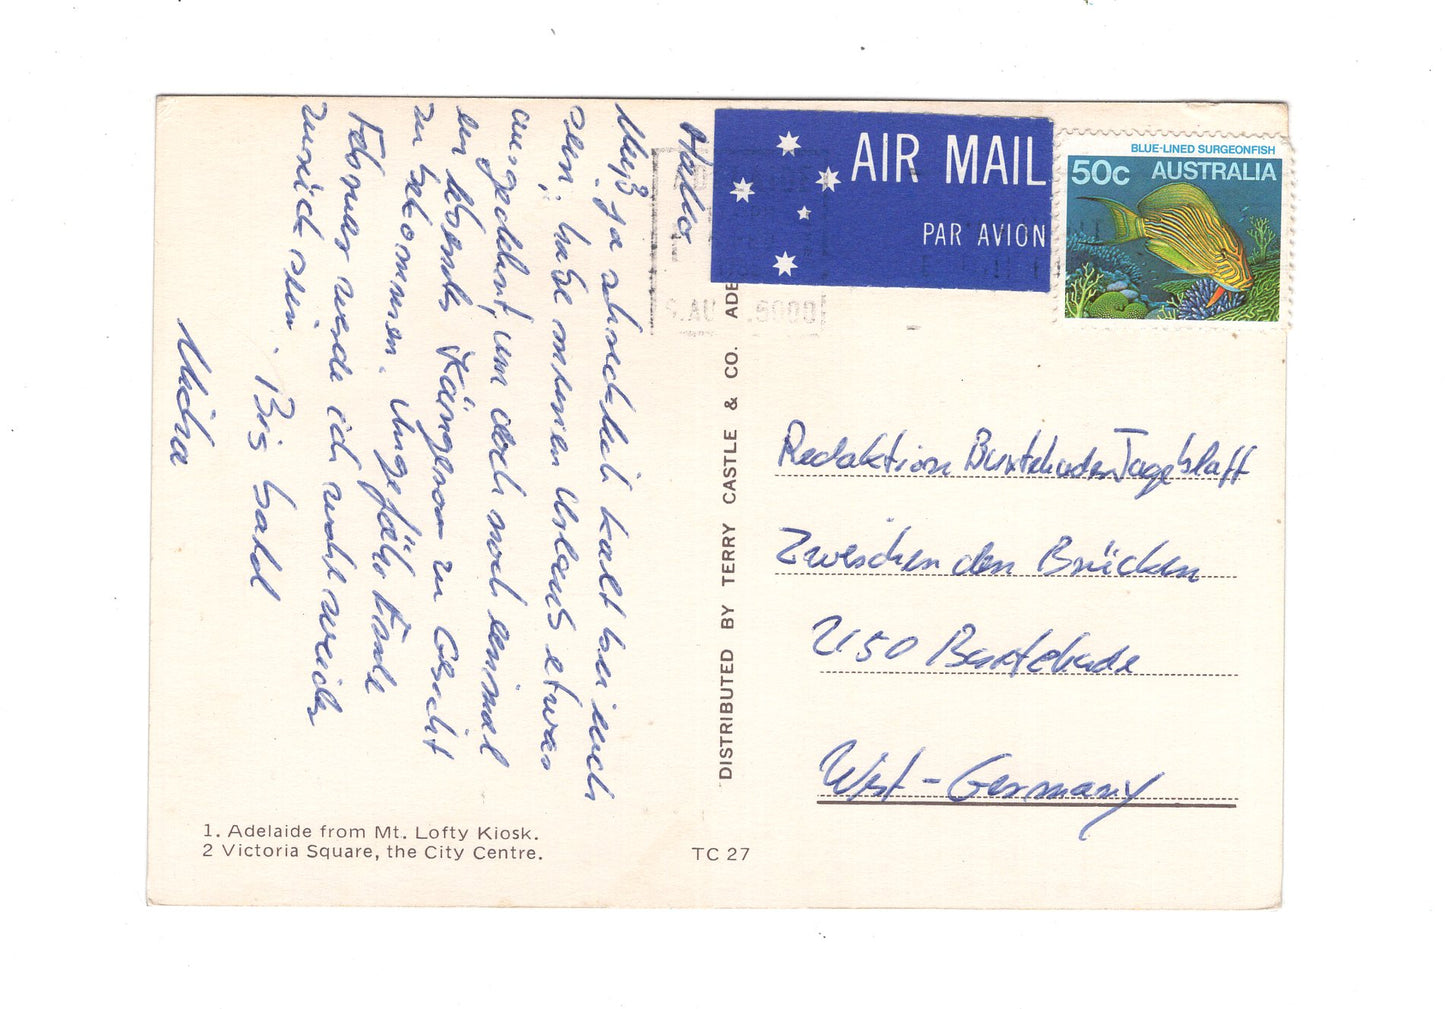 Hallo
Muß ja schrecklich kalt bei euch
sein; habe meinen Urlaub etwas
ausgedehnt, um doch noch einmal
ein lebends Känguru zu Gesicht
zu bekommen. Ungefähr Ende
Februar werde ich wohl wieder
zurück sein. Bis bald
Micha
AIR MAIL
PAR AVION
BLUE-LINED SURGEONFISH
50c AUSTRALIA
Redaktion Buxtehuder Tageblatt
Zwischen den Brücken
2150 Buxtehude
West-Germany
DISTRIBUTED BY TERRY CASTLE & CO. ADE
1. Adelaide from Mt. Lofty Kiosk.
2 Victoria Square, the City Centre.
TC 27